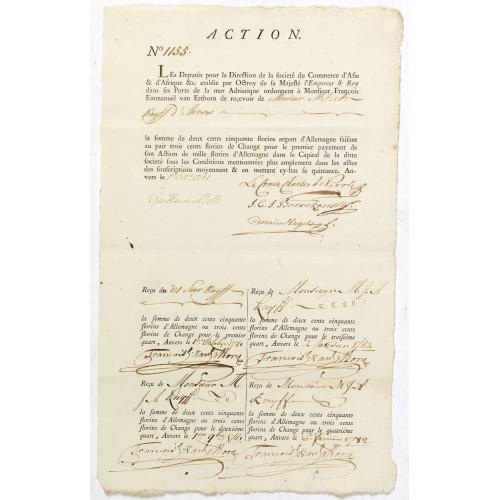 ACTION.
No 1155.
LEs Deputés pour la Direction de la société du Commerce d'Asie
& d'Afrique &c. etablie par Octroy de sa Majesté l'Empereur & Roy
dans ses Ports de la mer Adriatique ordongent à Monsieur François
Emmanuel van Ertborn de reçevoir de Monsieur M. J. A.
Knyff d'Anvers
la somme de deux cents cinquante florins argent d'Allemagne faisant
au pair trois cents florins de Change pour le premier payement de
son Action de mille florins d'Allemagne dans le Capital de la ditte
société sous les Conditions mentionnées plus amplement dans les actes
des souscriptions moyennant & en mettant cy-bas sa quittance. Anvers
le
Le Comte Charles de
Guillaume Bolts
J. C. J.
Reçu du dit Sieur Knyff
la somme de deux cents cinquante
florins d'Allemagne ou trois cents
florins de Change pour le premier
quart, Anvers le 1781
François E. van Ertborn
Reçu de Monsieur M. J. A
Knyff
la somme de deux cents cinquante
florins d'Allemagne ou trois cents
florins de Change pour le troisième
quart, Anvers le 2 1782
François E. van Ertborn
Reçu de Monsieur M.
J A. Knyff
la somme de deux cents cinquante
florins d'Allemagne ou trois cents
florins de Change pour le deuxième
quart, Anvers le 1er 9bre 1781
François E. van Ertborn
Reçu de Monsieur M. J. A
Knyff
la somme de deux cents cinquante
florins d'Allemagne ou trois cents
florins de Change pour le quatrième
quart, Anvers le 6 fevrier 1782
François E. van Ertborn